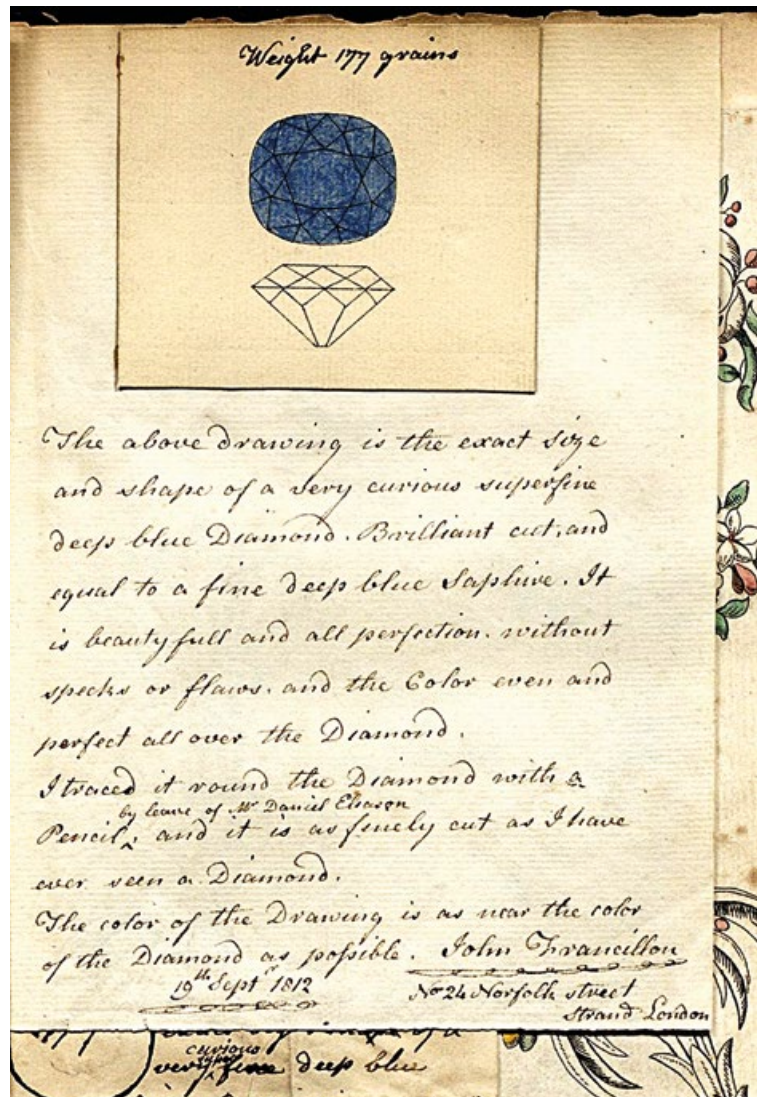 Weight 177 grains
The above drawing is the exact size
and shape of a very curious superfine
deep blue Diamond. Brilliant cut, and
equal to a fine deep blue Saphire. It
is beautyfull and all perfection. without
specks or flaws. and the Color even and
perfect all over the Diamond.
I traced it round the Diamond with a
by leave of Mr Daniel Eliason
Pencil, and it is as finely cut as I have
ever seen a Diamond.
The color of the Drawing is as near the color
of the Diamond as possible. John Francillon
19th Septr 1812 No 24 Norfolk street
Strand London
curious
very fine deep blue